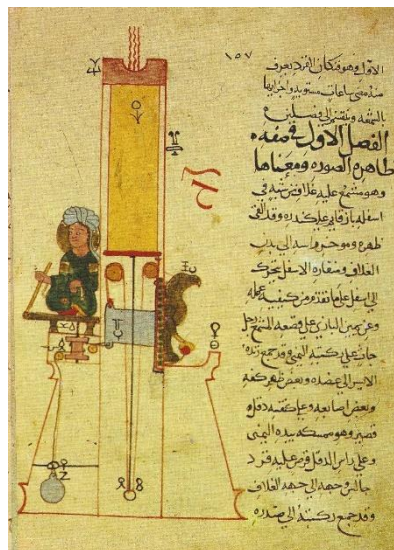 ١٥٧
الاول وهو فنكان القرد يعرف
منه مضي ساعات مستويه واجزايها
بالشمعه وينقسم الى فصلين
الفصل الاول في صفه
ظاهره الصوره ومعناها
وهو شمع عليه غلاف من شبه في
اسفله باز قايم على كندره وقد القى
ظهره وموخر راسه الى بدن
الغلاف ومنقاره الاسفل تحرك
الى اسفل على ما تقدم من كيفيه عمله
وعن يمين البازي على قصعه الشمع رجل
جاث على ركبته اليمنى وقد جمع زنده
الايسر الى عضده وبعض ظهر كفه
وبعض اصابعه وعلى كتفه دقل
قصير وهو ممسكه بيده اليمنى
وعلى راس الدقل قرص عليه قرد
جالس وجهه الى جهه الغلاف
وقد جمع ركبتيه الى صدره